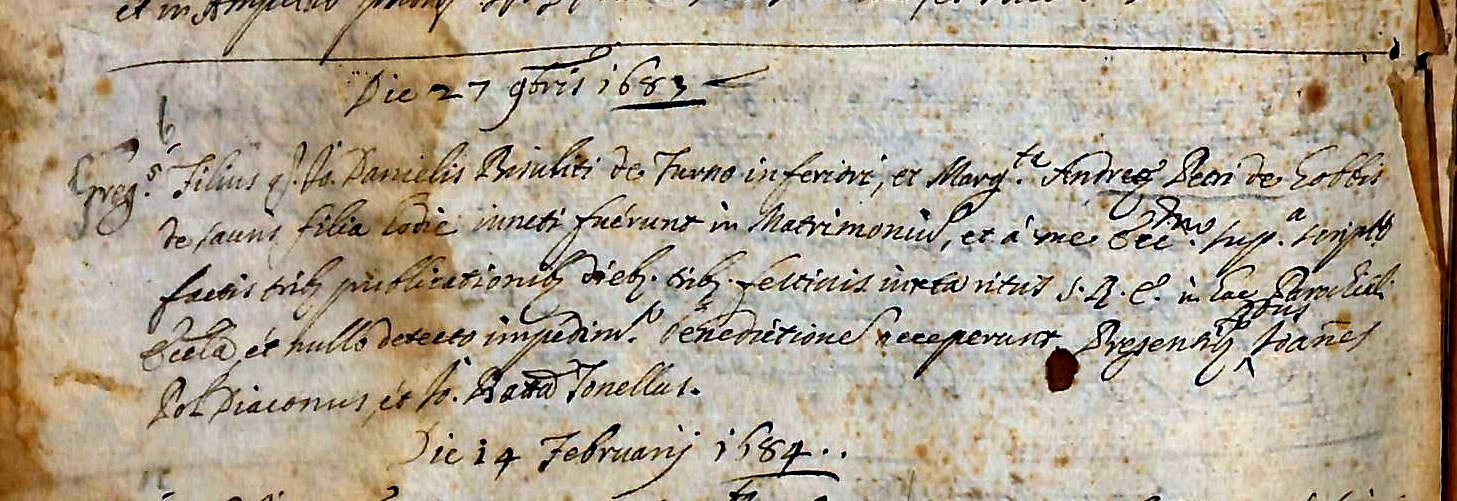 Die 27 9bris 1683
6
Greg.s Filius q. Jo. Danielis Risuliti de Furno inferiori, et Marg.ta Andreę de
de Sauris filia hodie iuncti fuerunt in Matrimoniũ, et à me supa. scripto
factis trib. publicationib. dieb. trib. festivis iuxta ritus S. R. E. in hac Parochiali
Eccla, et nullo detecto impedim.o benedictionẽ receperunt Presentib. Joañes
Diaconus, et Jo. Batta Tonellus.
Die 14 Februarij 1684..